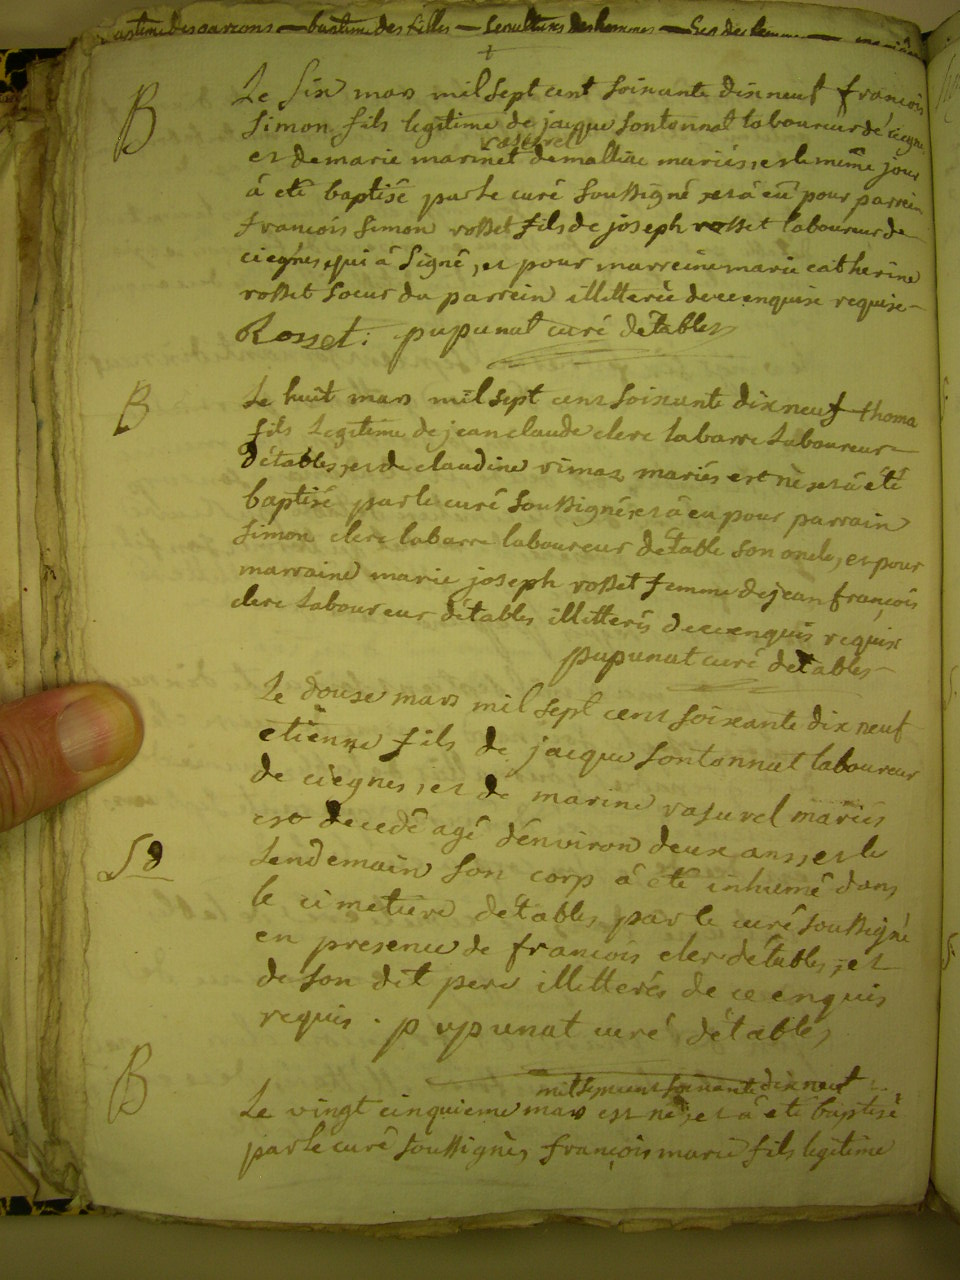 bastime des garcons — bastime des filles — sepultures des hommes — Sep des femme —
B
Le six mars mil sept cent soixante dix neuf françois
simon fils legitime de jacque sontonnat laboureur de ciegne
vasurel
et de marie marinet demalline mariés, et le même jour
â eté baptisé par le curé soussigné, et â eu pour parrein
francois simon rosset fils de joseph rosset laboureur de
ciegnes, qui â signé, et pour marreine marie catherine
rosset soeur du parrein illitterée de ce enquise requise
Rosset: pupunat curé détables
B
Le huit mars mil sept cent soixante dix neuf thoma
fils legitime de jean claude clerc labarre laboureur
détables, et de claudine vimas, mariés est né, et â eté
baptisé par le curé soussigné, et â eu pour parrain
simon clerc labarre laboureur détable son oncle, et pour
marraine marie joseph rosset femme de jean françois
clerc laboureur détables illitterés de ce enquis requis
pupunat curé détables
Le douse mars mil sept cent soixante dix neuf
etienne fils de jacque sontonnat laboureur
de ciegnes, et de marine vasurel mariés
est decedé agé d'environ deux ans, et le
Sd
lendemain son corp â eté inhumé dans
le cimetiere détables par le curé soussigné
en presence de francois clerc détables, et
de son dit pere illitterés de ce enquis
requis. pupunat curé détables
B
mil sept cent soixante dix neuf
Le vingt cinquieme mars est né, et â eté baptisé
par le curé soussigné, françois marie fils legitime